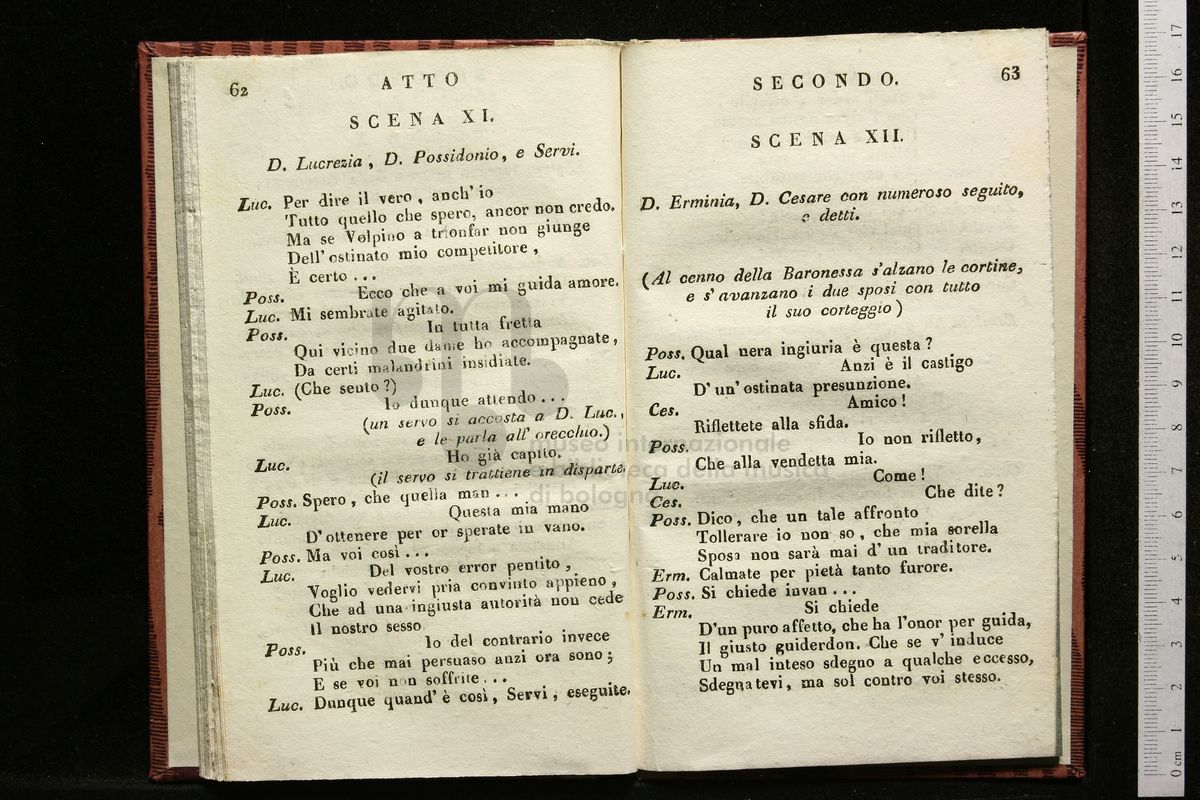 62
ATTO
SCENA XI.
D. Lucrezia, D. Possidonio, e Servi.
Luc. Per dire il vero, anch' io
Tutto quello che spero, ancor non credo.
Ma se Volpino a trionfar non giunge
Dell' ostinato mio competitore,
È certo ...
Poss. Ecco che a voi mi guida amore.
Luc. Mi sembrate agitato.
Poss. In tutta fretta
Qui vicino due dame ho accompagnate,
Da certi malandrini insidiate.
Luc. (Che sento?)
Poss. Io dunque attendo ...
(un servo si accosta a D. Luc.,
e le parla all' orecchio.)
Luc. Ho già capito.
(il servo si trattiene in disparte.
Poss. Spero, che quella man ...
Luc. Questa mia mano
D' ottenere per or sperate in vano.
Poss. Ma voi così ...
Luc. Del vostro error pentito,
Voglio vedervi pria convinto appieno,
Che ad una ingiusta autorità non cede
Il nostro sesso
Poss. Io del contrario invece
Più che mai persuaso anzi ora sono;
E se voi non soffrite ...
Luc. Dunque quand' è così, Servi, eseguite.
SECONDO.
63
SCENA XII.
D. Erminia, D. Cesare con numeroso seguito,
e detti.
(Al cenno della Baronessa s'alzano le cortine,
e s' avanzano i due sposi con tutto
il suo corteggio)
Poss. Qual nera ingiuria è questa?
Luc. Anzi è il castigo
D' un' ostinata presunzione.
Ces. Amico!
Riflettete alla sfida.
Poss. Io non rifletto,
Che alla vendetta mia.
Luc. Come!
Ces. Che dite?
Poss. Dico, che un tale affronto
Tollerare io non so, che mia sorella
Sposa non sarà mai d' un traditore.
Erm. Calmate per pietà tanto furore.
Poss. Si chiede invan ...
Erm. Si chiede
D'un puro affetto, che ha l'onor per guida,
Il giusto guiderdon. Che se v' induce
Un mal inteso sdegno a qualche eccesso,
Sdegnatevi, ma sol contro voi stesso.
museo internazionale
e biblioteca della musica
di bologna
0 cm 1 2 3 4 5 6 7 8 9 10 11 12 13 14 15 16 17